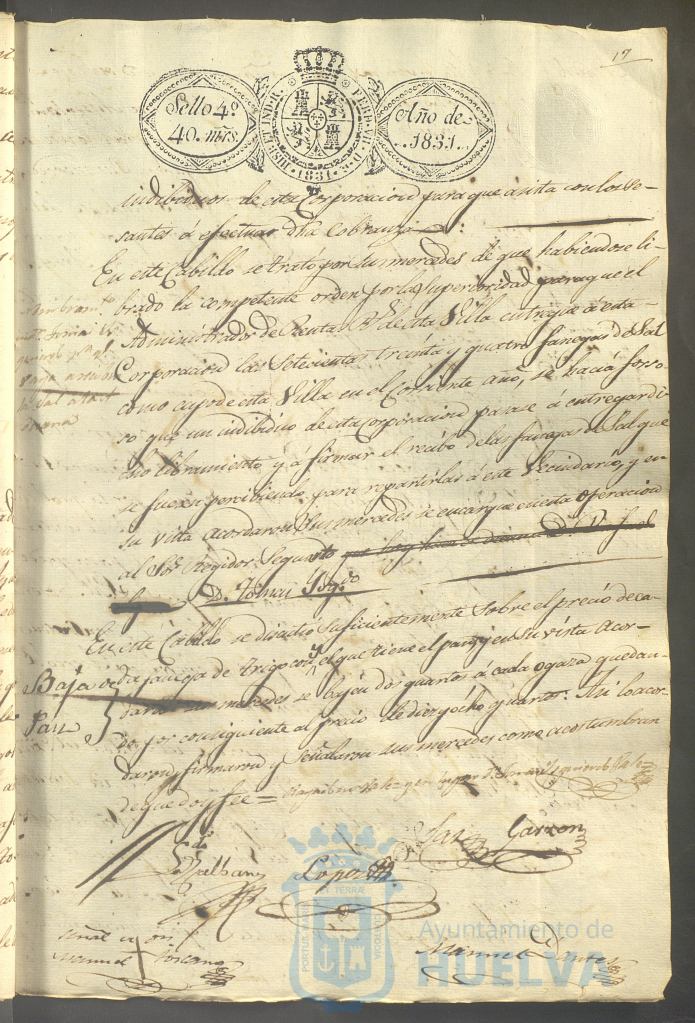 17
Sello 4º
40. mrs.
HISP. ET IND. R.
FERD. VII. D. G.
1831
Año de
1831.
indibiduos de esta Corporacion para que asista con los Ce-
santes á efectuar dha Cobranza
En este Cabildo se trató por sus mercedes de que habiendose li-
brado la competente orden por la Superioridad para que el
Administrador de Rentas Rs de esta Villa entregue a esta
Corporacion las Setecientas treinta y quatro fanegas de Sal
como cupo de esta Villa en el Corriente año, se hacia forso-
so que un indibiduo de esta Corporacion pasase á entregar di-
cho libramiento, y á firmar el recibo de las fanegas de Sal que
se fuesen percibiendo para repartirlas á este Vecindario, y en
su vista acordaron sus mercedes se encargue en esta operacion
al Sor Regidor Segundo
D. Tomas Izqdo
En este Cabildo se discutió suficientemente sobre el precio de ca-
da fanega de trigo con el que tiene el pan, y en su vista Acor-
daron sus mercedes se bajen dos quartos á cada ogaza quedan-
do por consiguiente al precio de dies y ocho quartos. Asi lo acor-
daron, firmaron y Señalaron sus mercedes como acostumbran
de que doy fee =
Baja de
Pan
Garzon
López
Señal de
Manuel Toscano
Manuel
Ayuntamiento de
HUELVA
PORTUS MARIS
ET TERRÆ
CUSTODIA